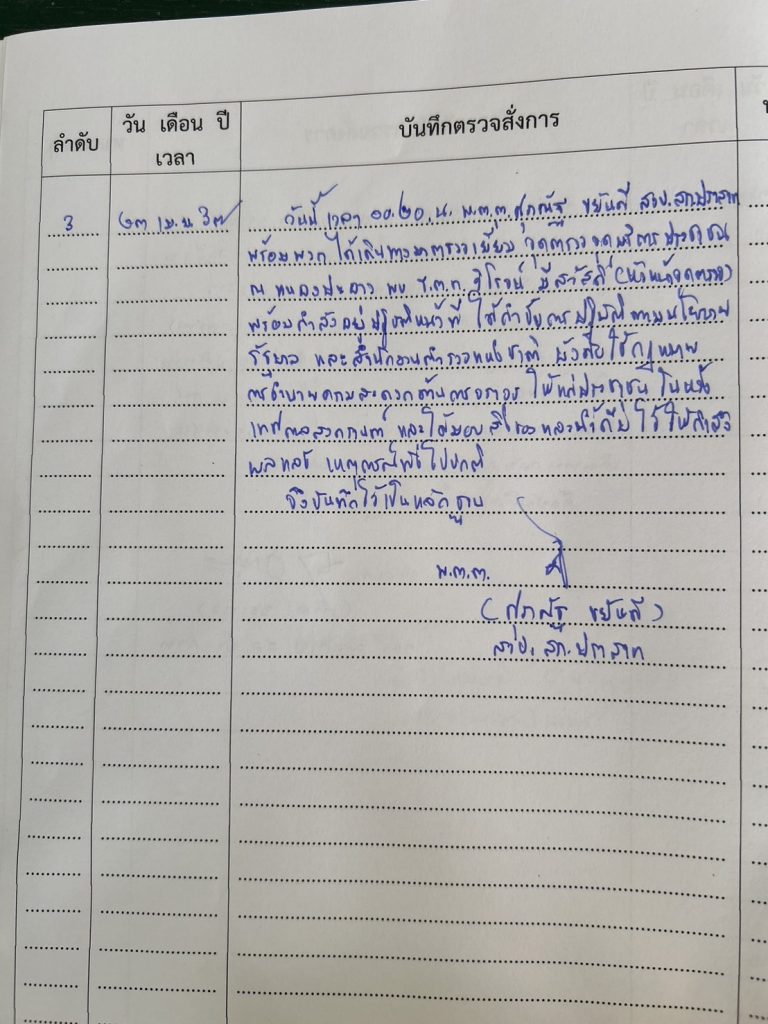 ลำดับ
วัน เดือน ปี
เวลา
บันทึกตรวจสั่งการ
3
๑๓ เม.ย. ๖๗
วันนี้ เวลา ๑๐.๒๐ น. พ.ต.ต.ศุภณัฐ ขยันดี สวป.สภ.ปราสาท
พร้อมพวก ได้เดินทางมาตรวจเยี่ยม จุดตรวจ จุดบริการประชาชน
ณ หนอง พบ ร.ต.ต. วิโรจน์ มีสวัสดิ์ (หัวหน้าจุดตรวจ)
พร้อมกำลังอยู่ปฏิบัติหน้าที่ ได้กำชับการปฏิบัติตามนโยบาย
รัฐบาล และสำนักงานตำรวจแห่งชาติ บังคับใช้กฎหมาย
การอำนวยความสะดวกด้านการจราจร ให้แก่ประชาชน ในห้วง
เทศกาลสงกรานต์ และได้มอบ และน้ำดื่ม ไว้ให้กำลัง
พลแล้ว เหตุการณ์ทั่วไปปกติ
จึงบันทึกไว้เป็นหลักฐาน
พ.ต.ต.
(ศุภณัฐ ขยันดี)
สวป.สภ.ปราสาท